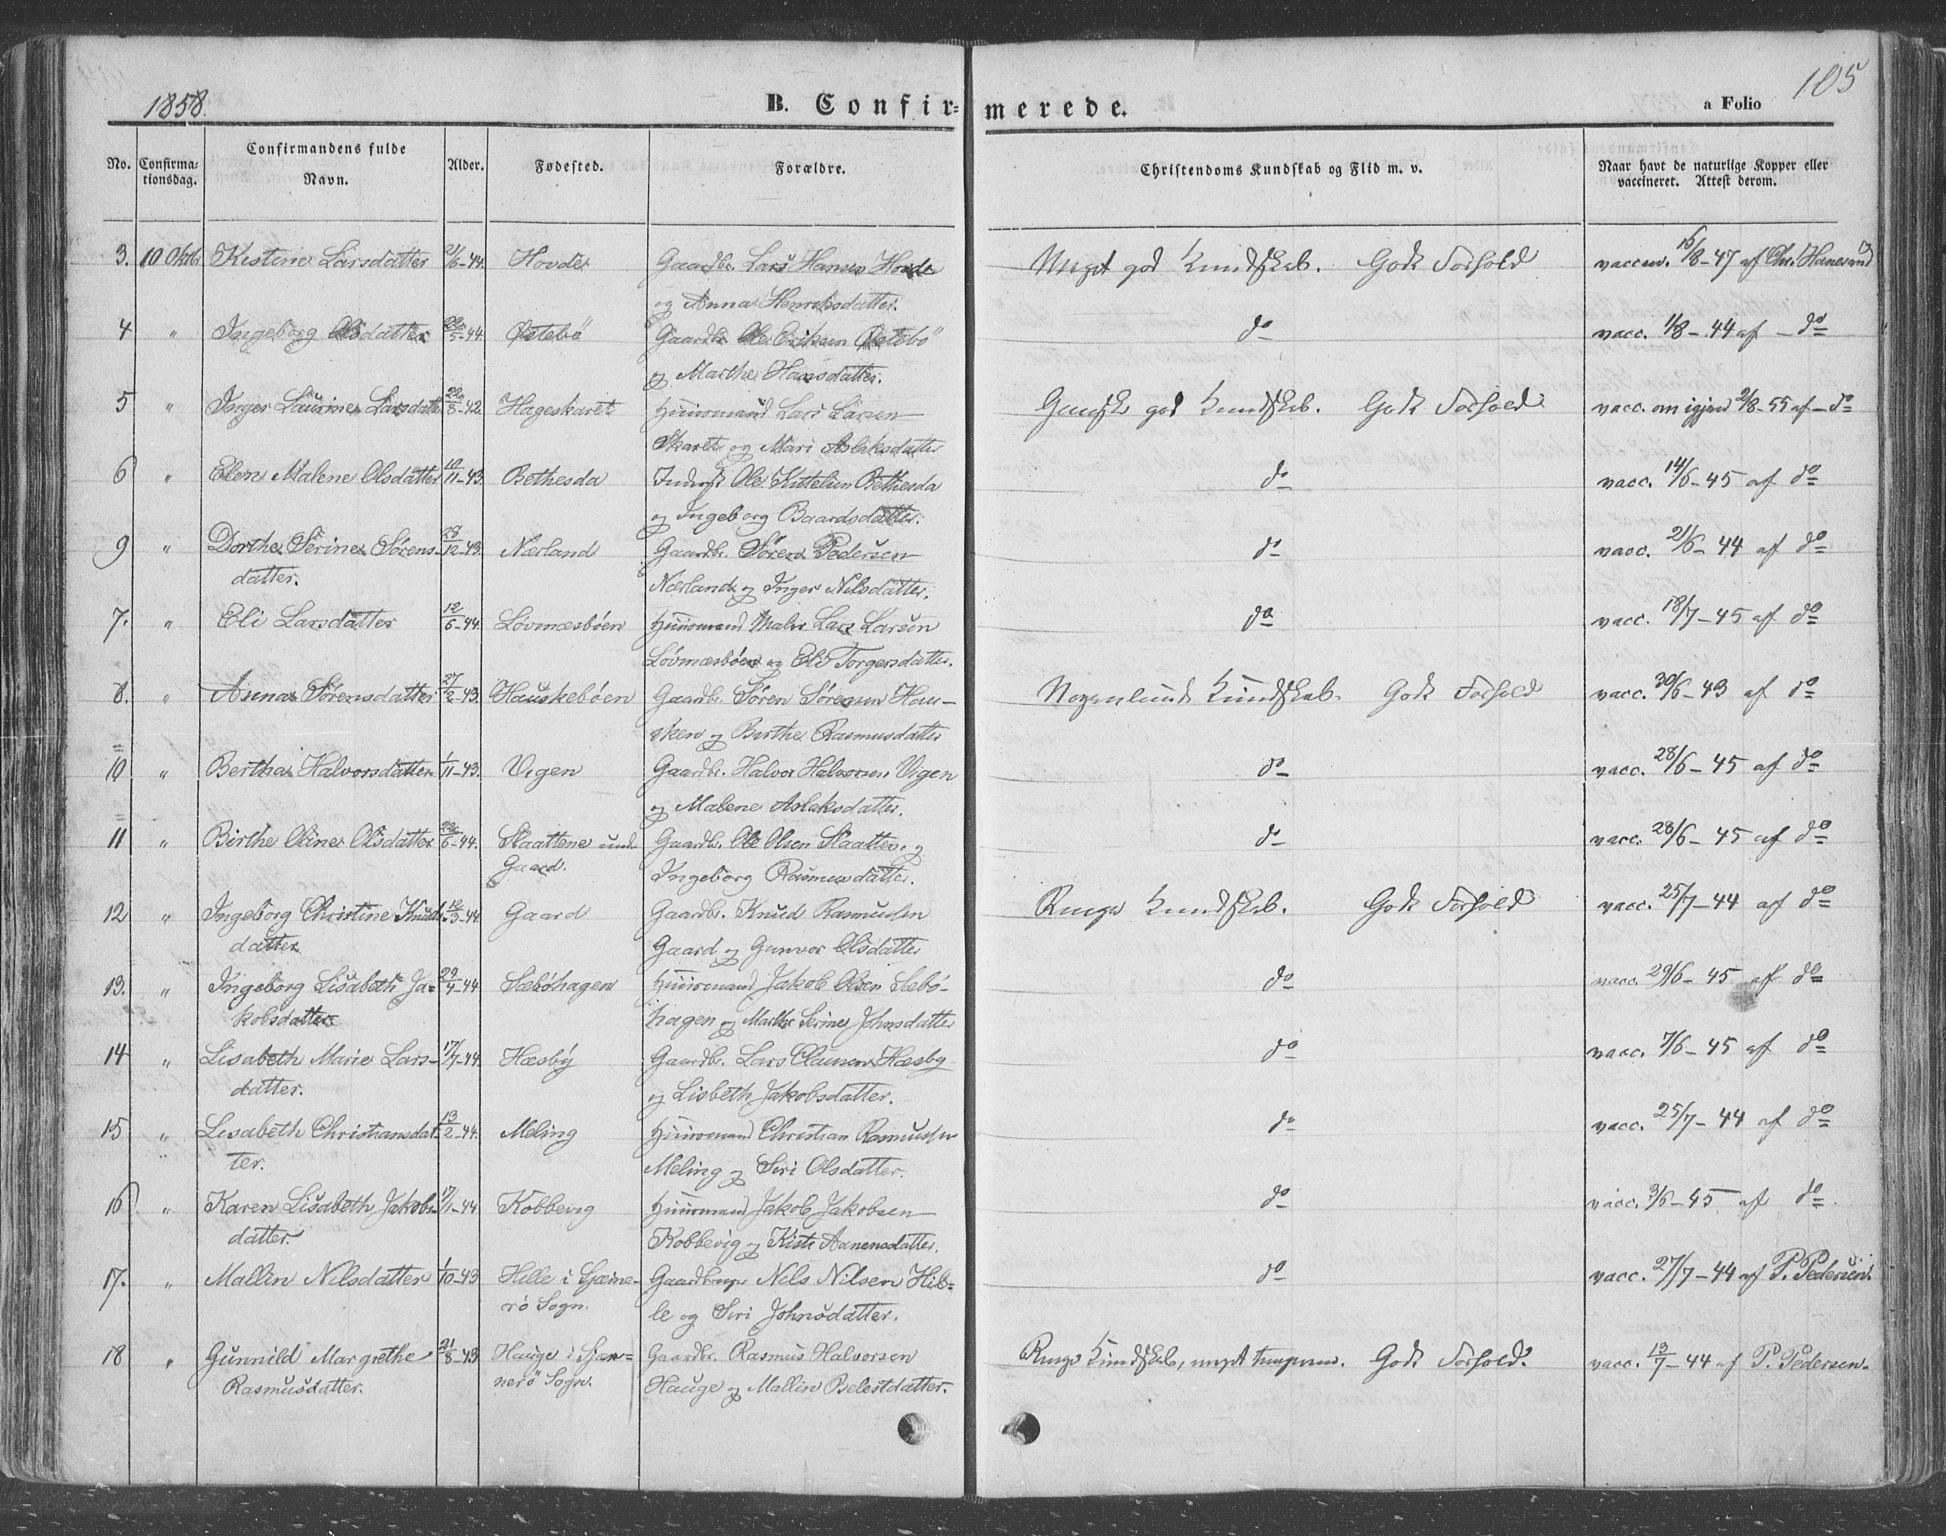 1858.
B. Confirmerede.
a Folio 105
No. Confirmationsdag. Confirmandens fulde Navn. Alder. Fødested. Forældre. Christendoms Kundskab og Flid m. v. Naar havt de naturlige Kopper eller vaccineret. Attest derom.
3. 10 Oktb. Kistine Larsdatter 21/6-44. Hovde Gaardbr. Lars Hansen Hovde Meget god Kundskab. Godt Forhold vaccin. 16/8-47 af Chr. Hanesand
og Anna Henriksdatter.
4 " Ingeborg Olsdatter 22/5-44. Østebö Gaardbr. Ole Eriksen Østebö do vacc. 1/8-44 af - do
og Marthe Hansdatter.
5 " Inger Laurine Larsdatter 22/8-42 Hageskaret Huusmand Lars Larsen Ganske god Kundskab. Godt Forhold vacc. om igjen 2/8-55 af - do
Skaret og Mari Aslaksdatter
6 " Elen Malene Olsdatter 10/11-43. Bethesda Inderst Ole Kittelsen Bethesda do vacc. 14/6-45 af do
og Ingeborg Baardsdatter.
9 " Dorthe Serine Sørens- 28/12-43. Nærland Gaardbr. Søren Pedersen do vacc. 21/6-44 af do
datter. Nærland og Inger Nilsdatter.
7. " Eli Larsdatter 12/6-44. Løvmæsbøen Huusmand Maler Lars Larsen do vacc. 18/7-45 af do
Løvmæsbøen og Eli Torgersdatter.
8. " Anna Sørensdatter 27/2-43. Hauskebøen Gaardbr. Søren Sørensen Hau- Nogenlunde Kundskab. Godt Forhold vacc. 30/6-43 af do
sken og Birthe Rasmusdatter
10 " Bertha Halvorsdatter 1/11-43. Vigen Gaardbr. Halvor Halvorsen Vigen do vacc. 28/6-45 af do
og Malene Aslaksdatter.
11 " Birthe Oline Olsdatter 22/6-44. Slaattene und. Gaardbr. Ole Olsen Slaatten og do vacc. 28/6-45 af do
Gaard. Ingeborg Rasmusdatter.
12 " Ingeborg Christine Knuds- 12/3-44 Gaard Gaardbr. Knud Rasmussen Ringe Kundskab. Godt Forhold vacc. 25/7-44 af do
datter Gaard og Gunvor Olsdatter
13. " Ingeborg Lisabeth Ja- 29/4-44 Sæbøhagen Huusmand Jakob Olsen Sæbø- do vacc. 29/6-45 af do
kobsdatter hagen og Marthe Serine Johnsdatter
14 " Lisabeth Marie Lars- 17/7-44. Hæsbÿ Gaardbr. Lars Clausen Hæsby do vacc. 7/6-45 af do
datter. og Lisbeth Jakobsdatter.
15 " Lisabeth Christiansdat- 13/2-44. Meling Huusmand Christian Rasmussen do vacc. 25/7-44 af do
ter. Meling og Siri Olsdatter.
16 " Karen Lisabeth Jakobs- 17/1-44 Kobbevig Huusmand Jakob Jakobsen do vacc. 3/6-45 af do
datter. Kobbevig og Kisti Aanensdatter.
17. " Mallin Nilsdatter 1/10-43 Hille i Sjærne- Gaardbruger Nils Nilsen Hil- do vacc. 27/7-44 af P. Pedersen.
rö Sogn. le og Siri Johnsdatter.
18 " Gunnild Margrethe 21/8-43 Hauge i Sjær- Gaardbr. Rasmus Halvorsen Ringe Kundskab, meget tungnem. Godt Forhold. vacc. 13/7-44 af P. Pedersen.
Rasmusdatter. nerö Sogn. Hauge og Mallin Belestdatter.